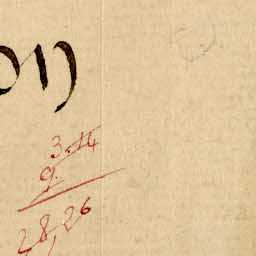 3.14
9.
28,26